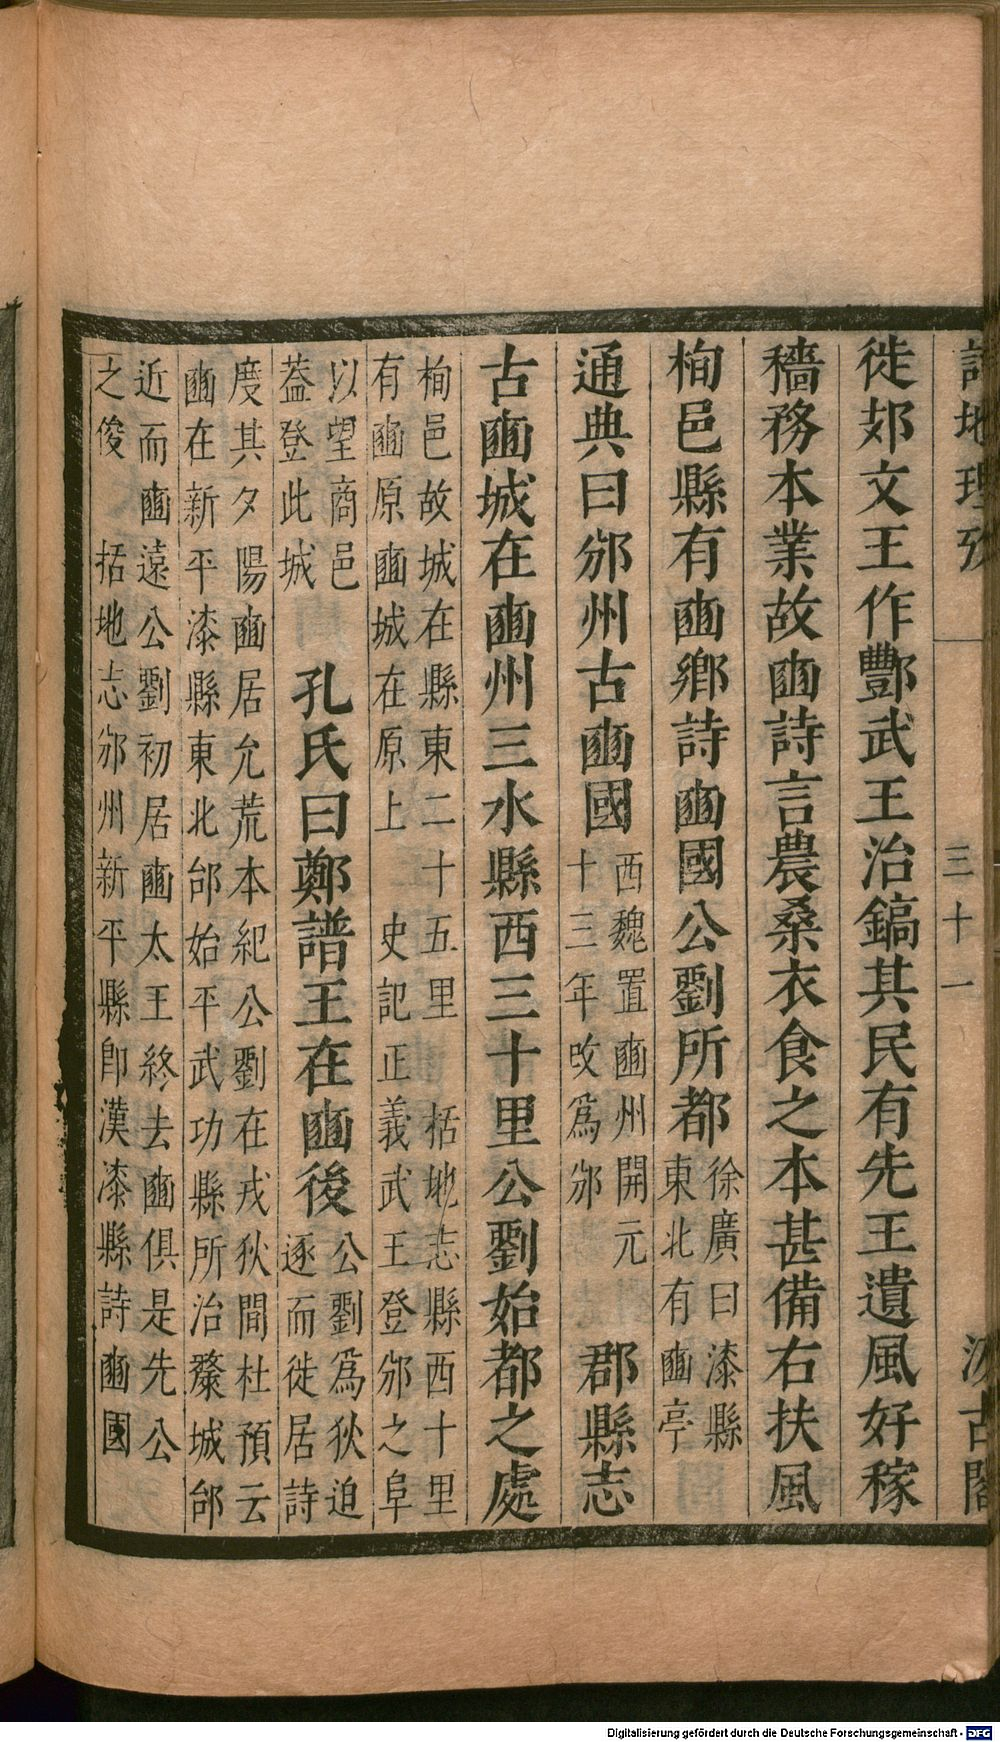 詩地理攷　三十一　汲古閣
徙𨙸文王作酆武王治鎬其民有先王遺風好稼
穡務本業故豳詩言農桑衣食之本甚備右扶風
栒邑縣有豳鄉詩豳國公劉所都
徐廣曰漆縣
東北有豳亭
通典曰邠州古豳國
西魏置豳州開元
十三年改爲邠
郡縣志
古豳城在豳州三水縣西三十里公劉始都之處
栒邑故城在縣東二十五里　括地志縣西十里
有豳原豳城在原上　史記正義武王登邠之阜
以望商邑
蓋登此城
孔氏曰鄭譜王在豳後
公劉爲狄迫
逐而徙居詩
度其夕陽豳居允荒本紀公劉在戎狄間杜預云
豳在新平漆縣東北邰始平武功縣所治漦城邰
近而豳遠公劉初居豳太王終去豳俱是先公
之俊　括地志邠州新平縣卽漢漆縣詩豳國
Digitalisierung gefördert durch die Deutsche Forschungsgemeinschaft - DFG